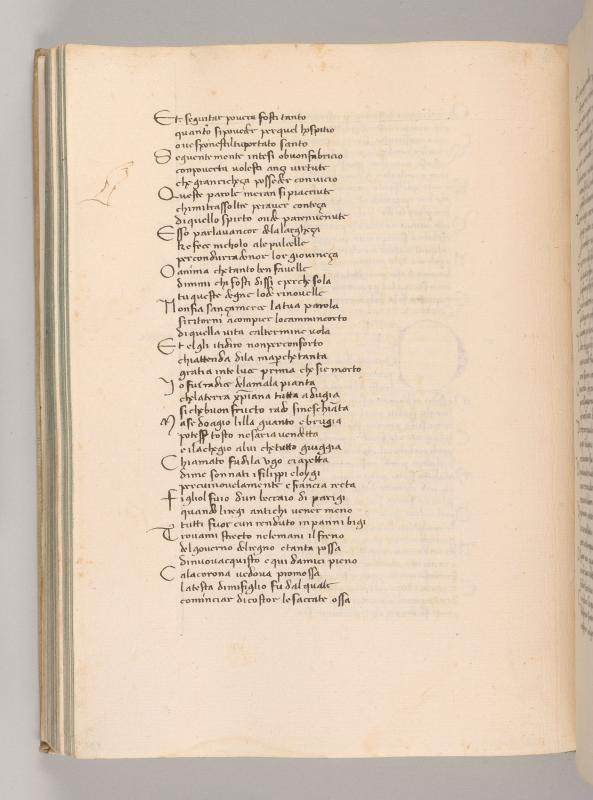 Et seguitar povera fosti tanto
quanto si po veder per quel hospitio
ove sponesti tuportato santo
Sequentemente intesi obuon fabricio
con poverta volesti anzi virtute
che gran richeça posseder con vicio
Queste parole meran si piacciute
chimi trassoltre per aver conteça
di quello spirto onde parenvenute
Esso parlavancor dela largheça
ke fece nicholo ale pulcelle
per condurradonor lor giovineça
O anima che tanto ben favelle
dimmi chi fosti dissi e perche sola
tu queste degne lode rinovelle
Non fia sança merce la tua parola
si ritorni a compier lo cammin corto
di quella vita cal termine vola
Et elgli iti diro non per conforto
chi attenda di la ma perche tanta
gratia in te luce prima che sie morto
Io fui radice dela mala pianta
che la terra xpiana tutta adugia
si che buon fructo rado sine schiata
Ma se doagio lilla guanto e brugia
potesser tosto ne saria vendetta
e i la chegio a lui che tutto guiggia
Chiamato fu di la ugo ciapetta
di me son nati i filippi eloygi
per cui novelamente e francia recta
Figliol fu io dun beccaio di parigi
quando li regi antichi vener meno
tutti fuor cun renduto in panni bigi
Trovami strecto nele mani il freno
del governo del regno e tanta possa
di nuovo acquisto e qui damici pieno
Cala corona vedova promossa
la testa di mi figlio fu dal quale
cominciar di costor le saccate ossa